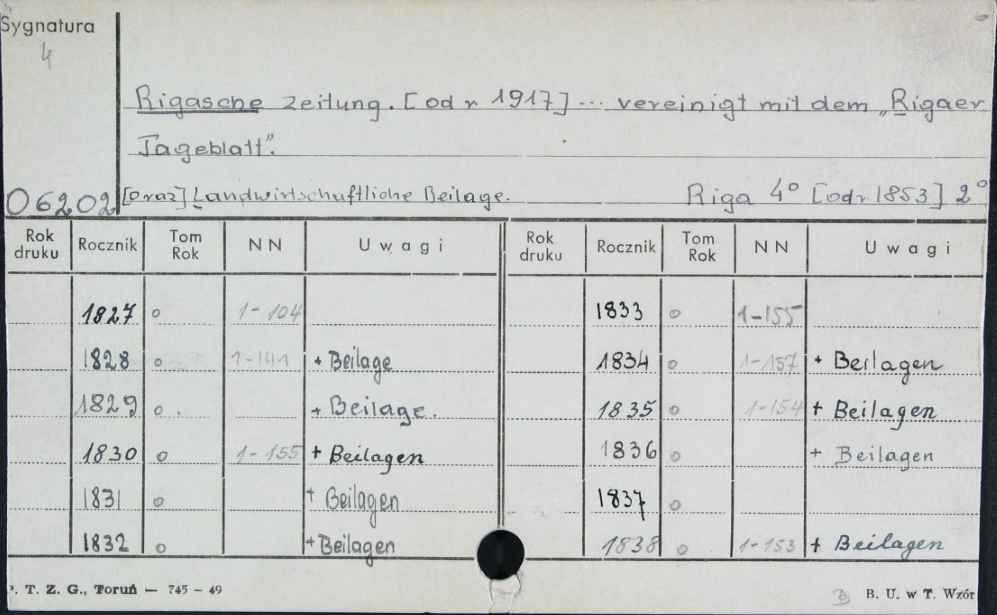 Sygnatura
4
Rigasche Zeitung. [od r 1917] ... vereinigt mit dem „Rigaer
Tageblatt".
06202 [oraz] Landwirtschaftliche Beilage. Riga 4° [od r 1853] 2°
Rok druku Rocznik Tom Rok NN Uwagi Rok druku Rocznik Tom Rok NN Uwagi
1827 o 1-104 1833 o 1-155
1828 o 1-141 + Beilage 1834 o 1-157 + Beilagen
1829 o . + Beilage. 1835 o 1-154 + Beilagen
1830 o 1-155 + Beilagen 1836 o + Beilagen
1831 o + Beilagen 1837 o
1832 o + Beilagen 1838 o 1-153 + Beilagen
P. T. Z. G., Toruń — 745 - 49 B. U. w T. Wzór